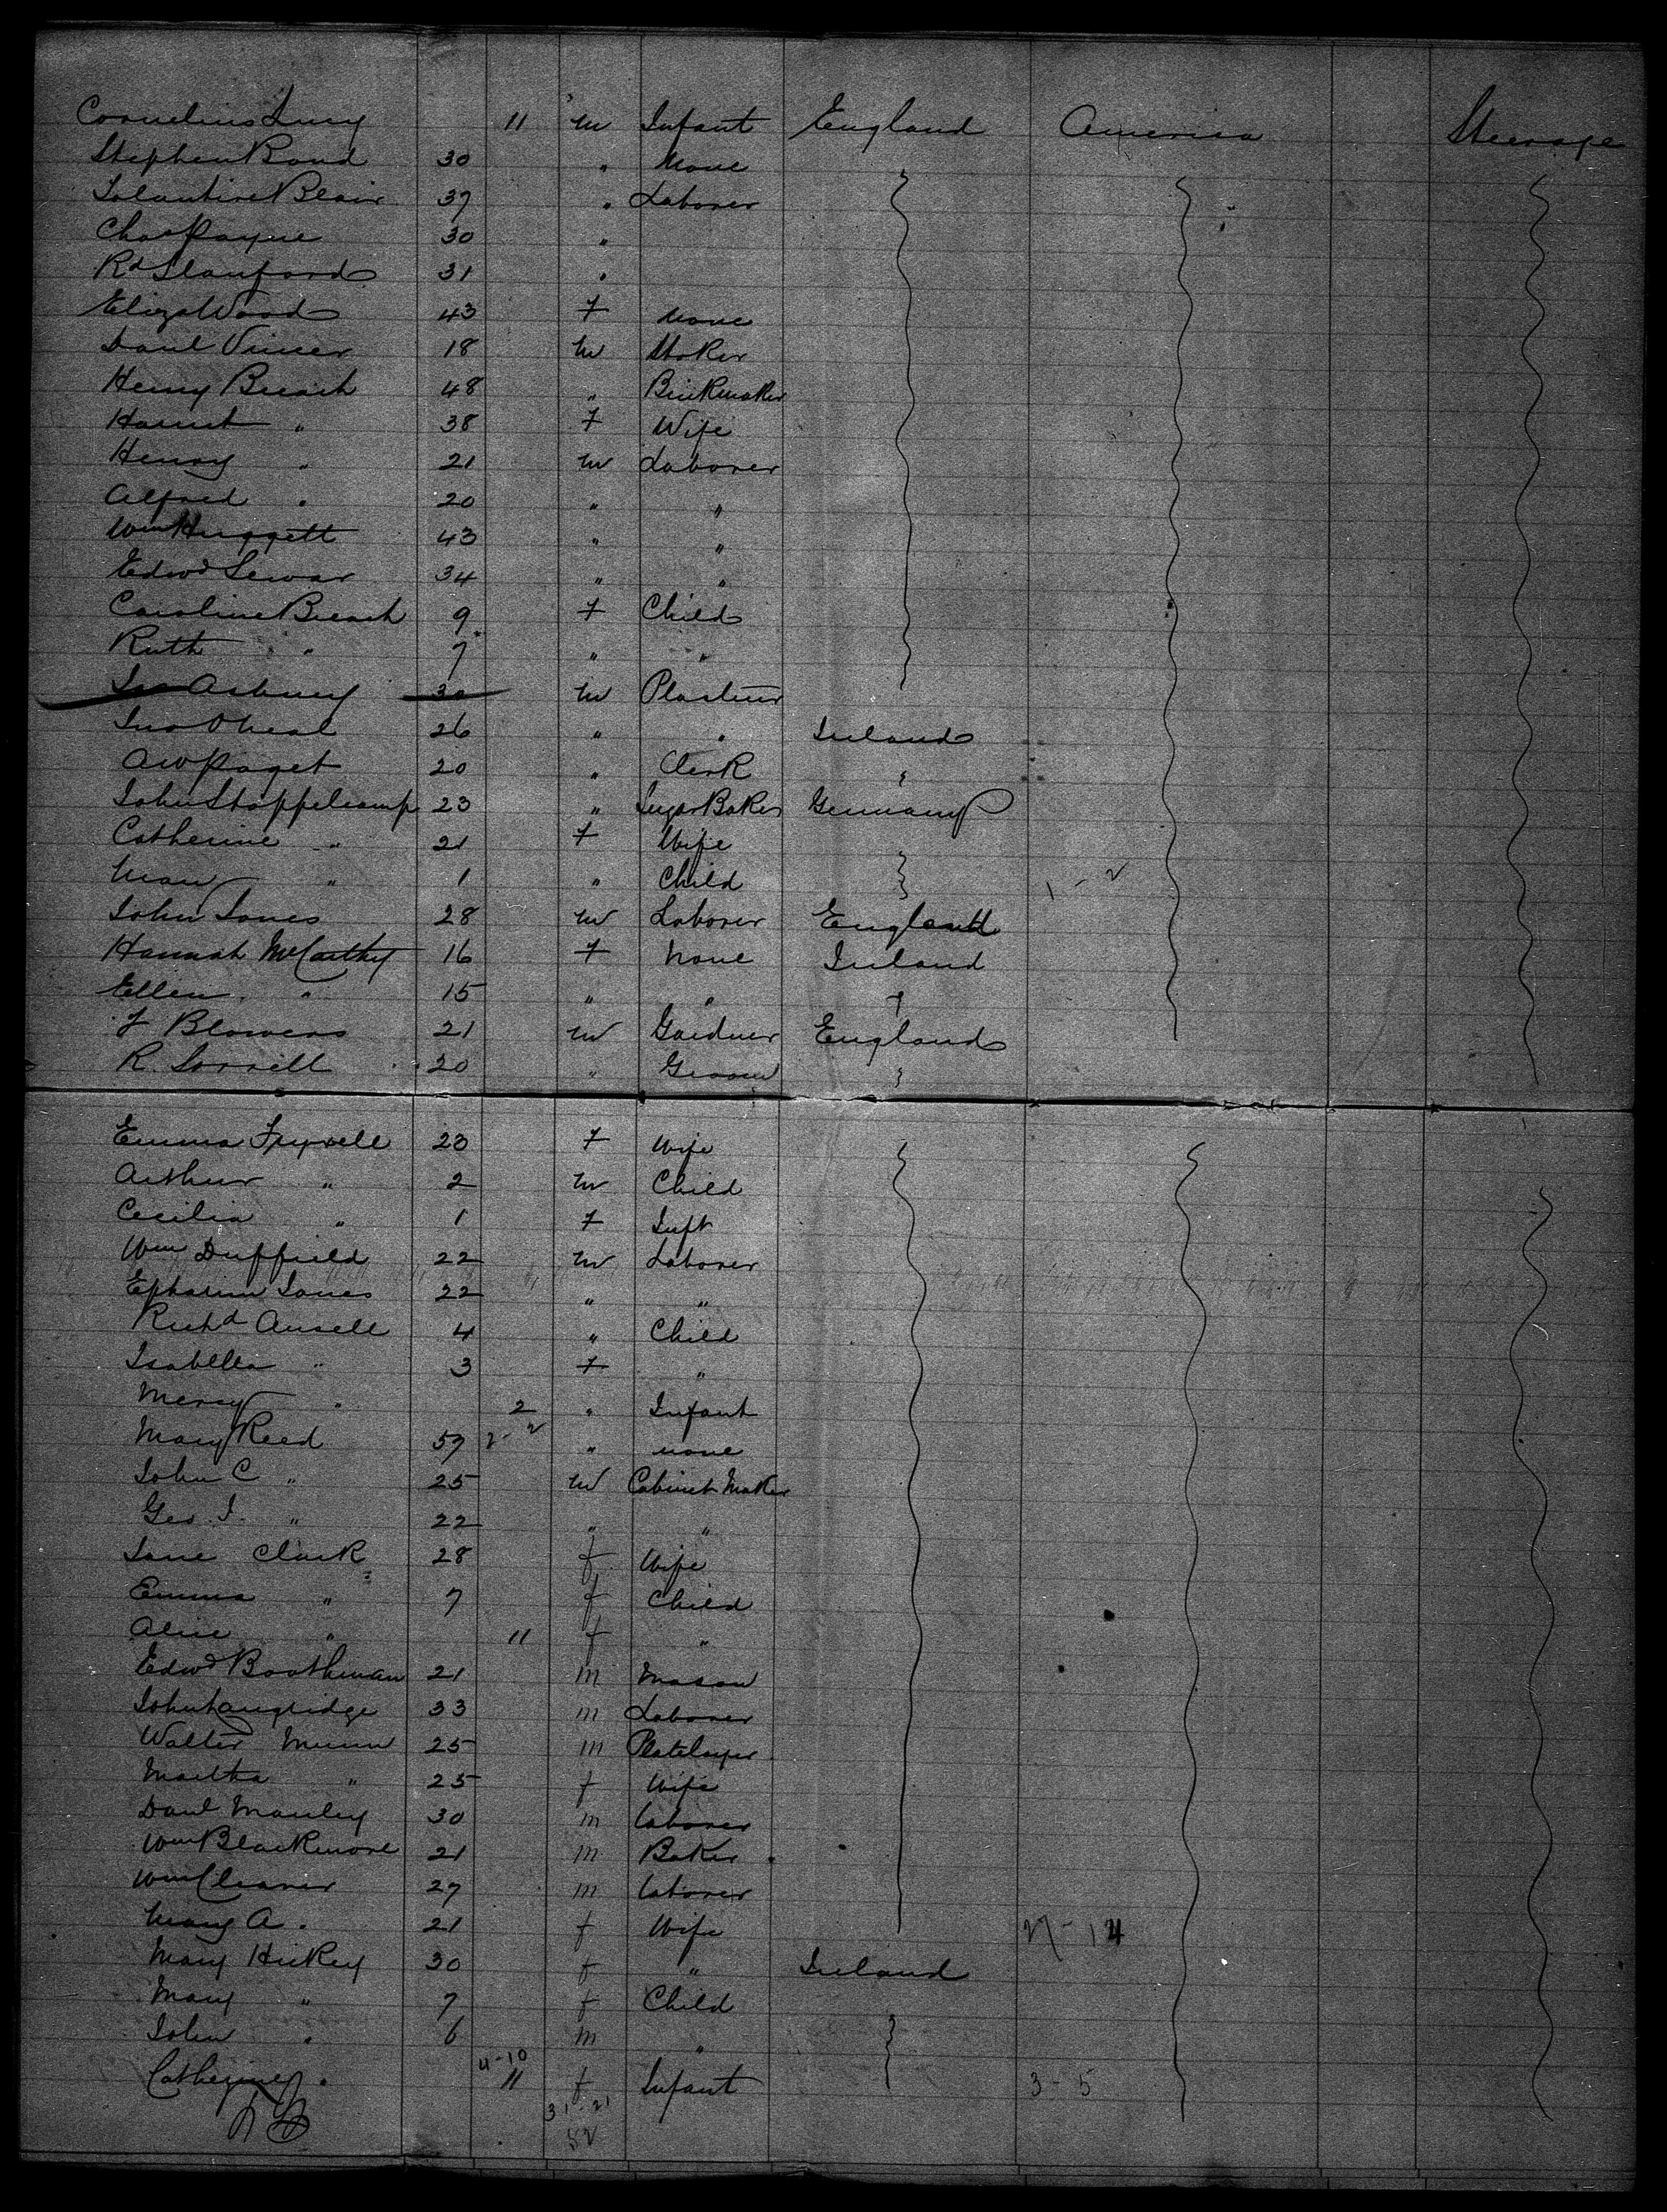 Cornelius Lucy 11 m Infant England America Steerage
Stephen Bond 30 " None
Blair 37 " Laborer
Chas Payne 30 "
Rd Stanford 31 "
Eliza Wood 43 f None
Danl Viner 18 m Stoker
Henry Breach 48 " Brickmaker
Harriet " 38 f Wife
Henry " 21 m Laborer
Alfred " 20 " "
Wm Huggett 43 " "
Edwd Sewar 34 " "
Caroline Breach 9 f Child
Ruth " 7 " "
Asbury 30 m Plasterer
Jno O'Neal 26 " " Ireland
A W Paget 20 " Clerk
John Stoppelcamp 23 " Sugar Baker Germany
Catherine " 21 f Wife
Mary " 1 " Child 1 - 2
John Jones 28 m Laborer England
Hannah McCarthy 16 f None Ireland
Ellen " 15 " " "
F Blowers 21 m Gardner England
R. Sorrell 20 " Groom
Emma 23 f Wife
Arthur " 2 m Child
Cecilia " 1 f Inft
Wm Duffield 22 m Laborer
Ephraim Jones 22 " "
Richd Ansell 4 " Child
Isabella " 3 f "
Mercy " 2 " Infant
Mary Reed 57 " none
John C " 25 m Cabinet Maker
Geo. J. " 22 " "
Jane Clark 28 f Wife
Emma " 7 f Child
Alice " 11 f "
Edwd Boothman 21 m Mason
John Langridge 33 m Laborer
Walter Munn 25 m Platelayer
Martha " 25 f Wife
Danl Manley 30 m Laborer
Wm Blackmore 21 m Baker
Wm Cleaver 27 m Laborer
Mary A. 21 f Wife 14
Mary Hickey 30 f " Ireland
Mary " 7 f Child
John " 6 m "
4-10
Catherine " 11 f Infant 3 - 5
31 21
52